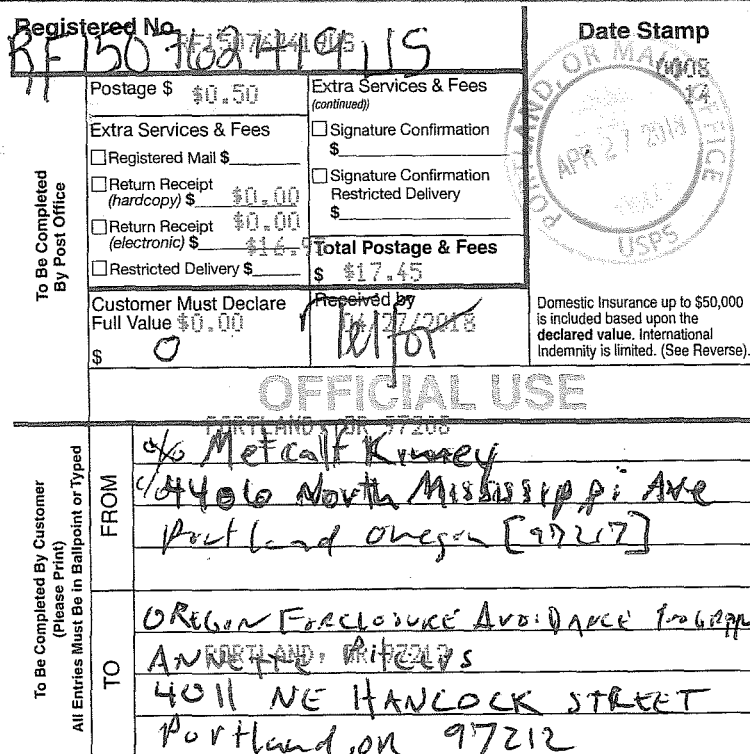 Registered No.
RF150762419US
RF150762419US
Date Stamp
0008
14
PORTLAND, OR MAIN OFFICE
APR 27 2018
USPS
To Be Completed
By Post Office
Postage $ $0.50
Extra Services & Fees
Registered Mail $
Return Receipt
(hardcopy) $ $0.00
Return Receipt $0.00
(electronic) $ $16.95
Restricted Delivery $
Extra Services & Fees
(continued))
Signature Confirmation
$
Signature Confirmation
Restricted Delivery
$
Total Postage & Fees
$ $17.45
Customer Must Declare
Full Value $0.00
$ 0
Received by
04/27/2018
Domestic Insurance up to $50,000
is included based upon the
declared value. International
Indemnity is limited. (See Reverse).
OFFICIAL USE
PORTLAND, OR 97208
To Be Completed By Customer
(Please Print)
All Entries Must Be in Ballpoint or Typed
FROM
c/o Metcalf Kinney
c/o 4406 North Mississippi Ave
Portland Oregon [97217]
TO
OREGON FORECLOSURE AVOIDANCE
PORTLAND, OR 97212
ANNETTE
4011 NE HANCOCK STREET
Portland, OR 97212